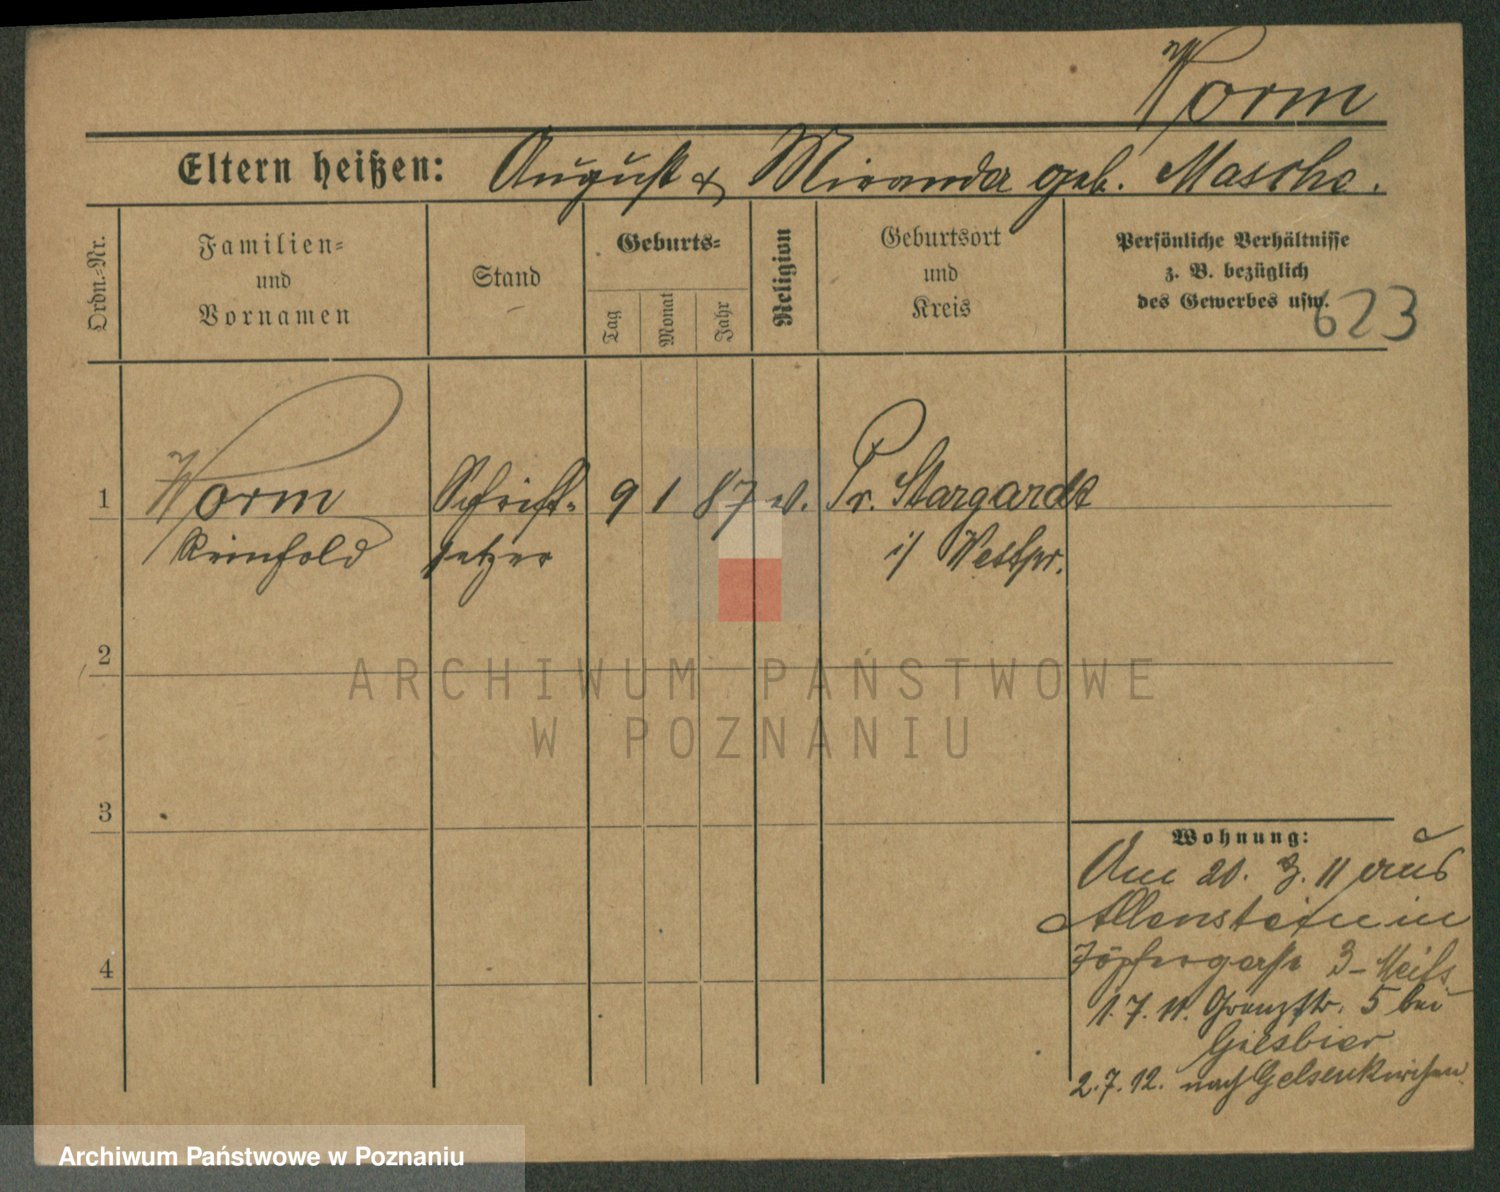 Worm
Eltern heißen: August & Miranda geb. Masche.
Ordn.-Nr.
Familien-
und
Vornamen
Stand
Geburts-
Tag
Monat
Jahr
Religion
Geburtsort
und
Kreis
Persönliche Verhältnisse
z. B. bezüglich
des Gewerbes usw.
623
1 Worm Schrift- 9 1 87 ev. Pr. Stargardt
Reinhold setzer i/ Westpr.
2
3
4
Wohnung:
Am 20. 3. 11 aus
Allenstein in
Töpfergasse 3-
1.7.11. Grenzstr. 5 bei
Giesbier
2.7.12. nach Gelsenkirchen
ARCHIWUM PAŃSTWOWE
W POZNANIU
Archiwum Państwowe w Poznaniu